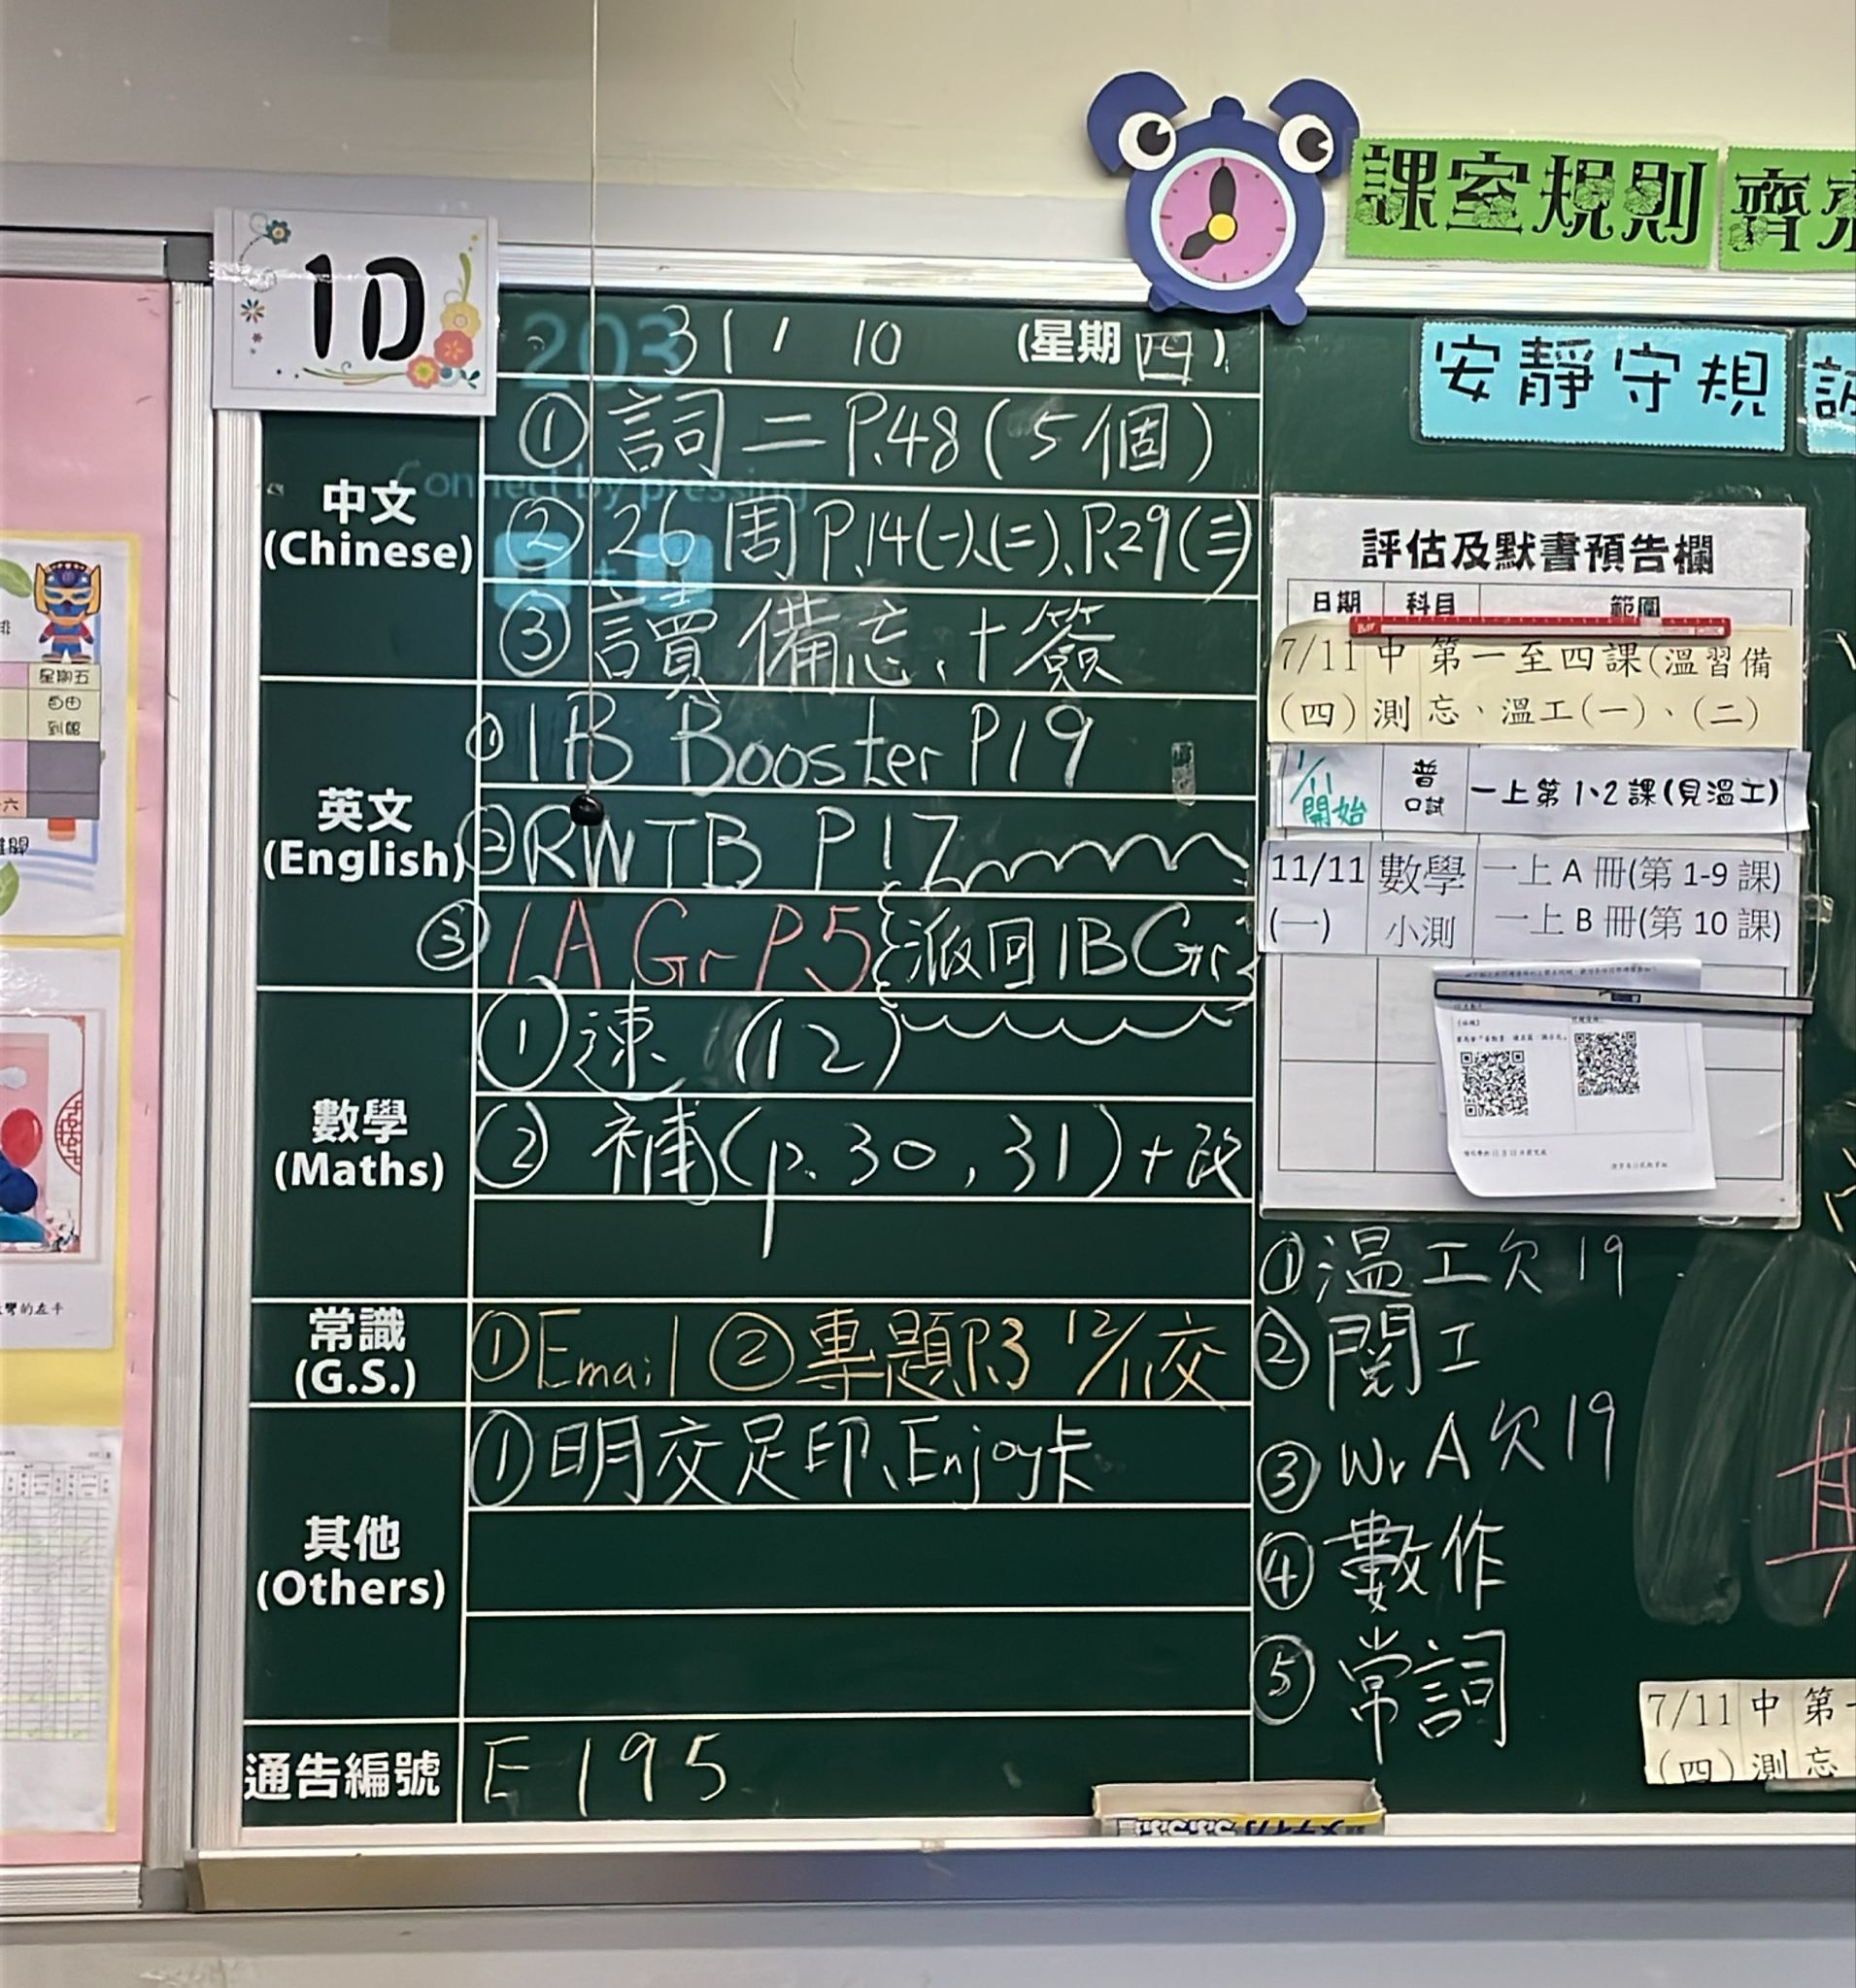 1D
課室規則
31 / 10 (星期四)
安靜守規
中文
(Chinese)
① 詞二 P.48 (5個)
② 26周 P.14(一)、(二)、P.29(三)
③ 讀備忘、+簽
英文
(English)
① 1B Booster P19
② RWTB P17
③ 1A Gr P5 派回1B Gr
數學
(Maths)
① 速 (12)
② 補(p.30, 31)+改
常識
(G.S.)
① Email ② 專題P.3 12/11交
其他
(Others)
① 明交足印、Enjoy卡
通告編號
E195
評估及默書預告欄
日期 科目 範圍
7/11 中 第一至四課(溫習備
(四) 測 忘、溫工(一)、(二)
1/11 開始 普 口試 一上第1、2課(見溫工)
11/11 數學 一上 A 冊(第 1-9 課)
(一) 小測 一上 B 冊(第 10 課)
① 溫工欠19
② 閱工
③ Wr A 欠19
④ 數作
⑤ 常詞
7/11 中 第一
(四) 測 忘
星期五
自由
203
Connect by pressing